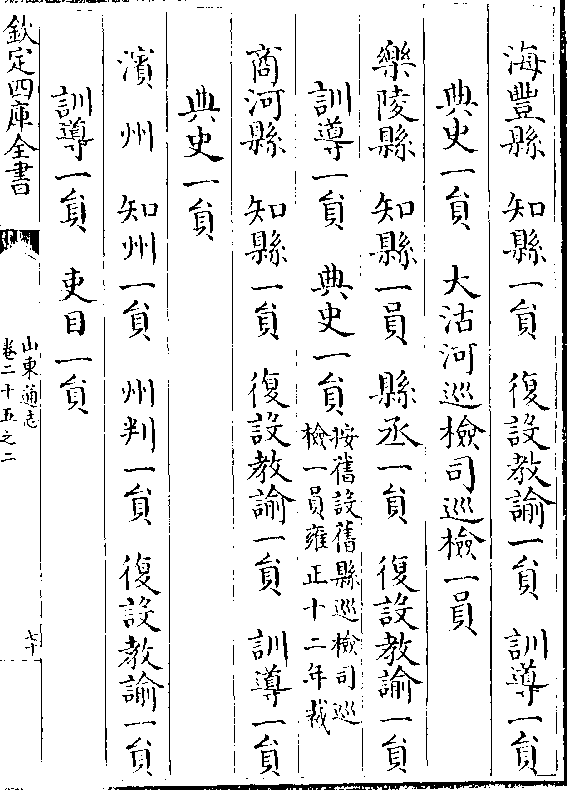 海豐縣　知縣一員　復設教諭一員　訓導一員
典史一員　大沽河巡檢司巡檢一員
樂陵縣　知縣一員　縣丞一員　復設教諭一員
訓導一員　典史一員按舊設舊縣巡檢司巡
檢一員雍正十二年裁
商河縣　知縣一員　復設教諭一員　訓導一員
典史一員
濱州　知州一員　州判一員　復設教諭一員
訓導一員　吏目一員
欽定四庫全書
山東通志
卷二十五之二